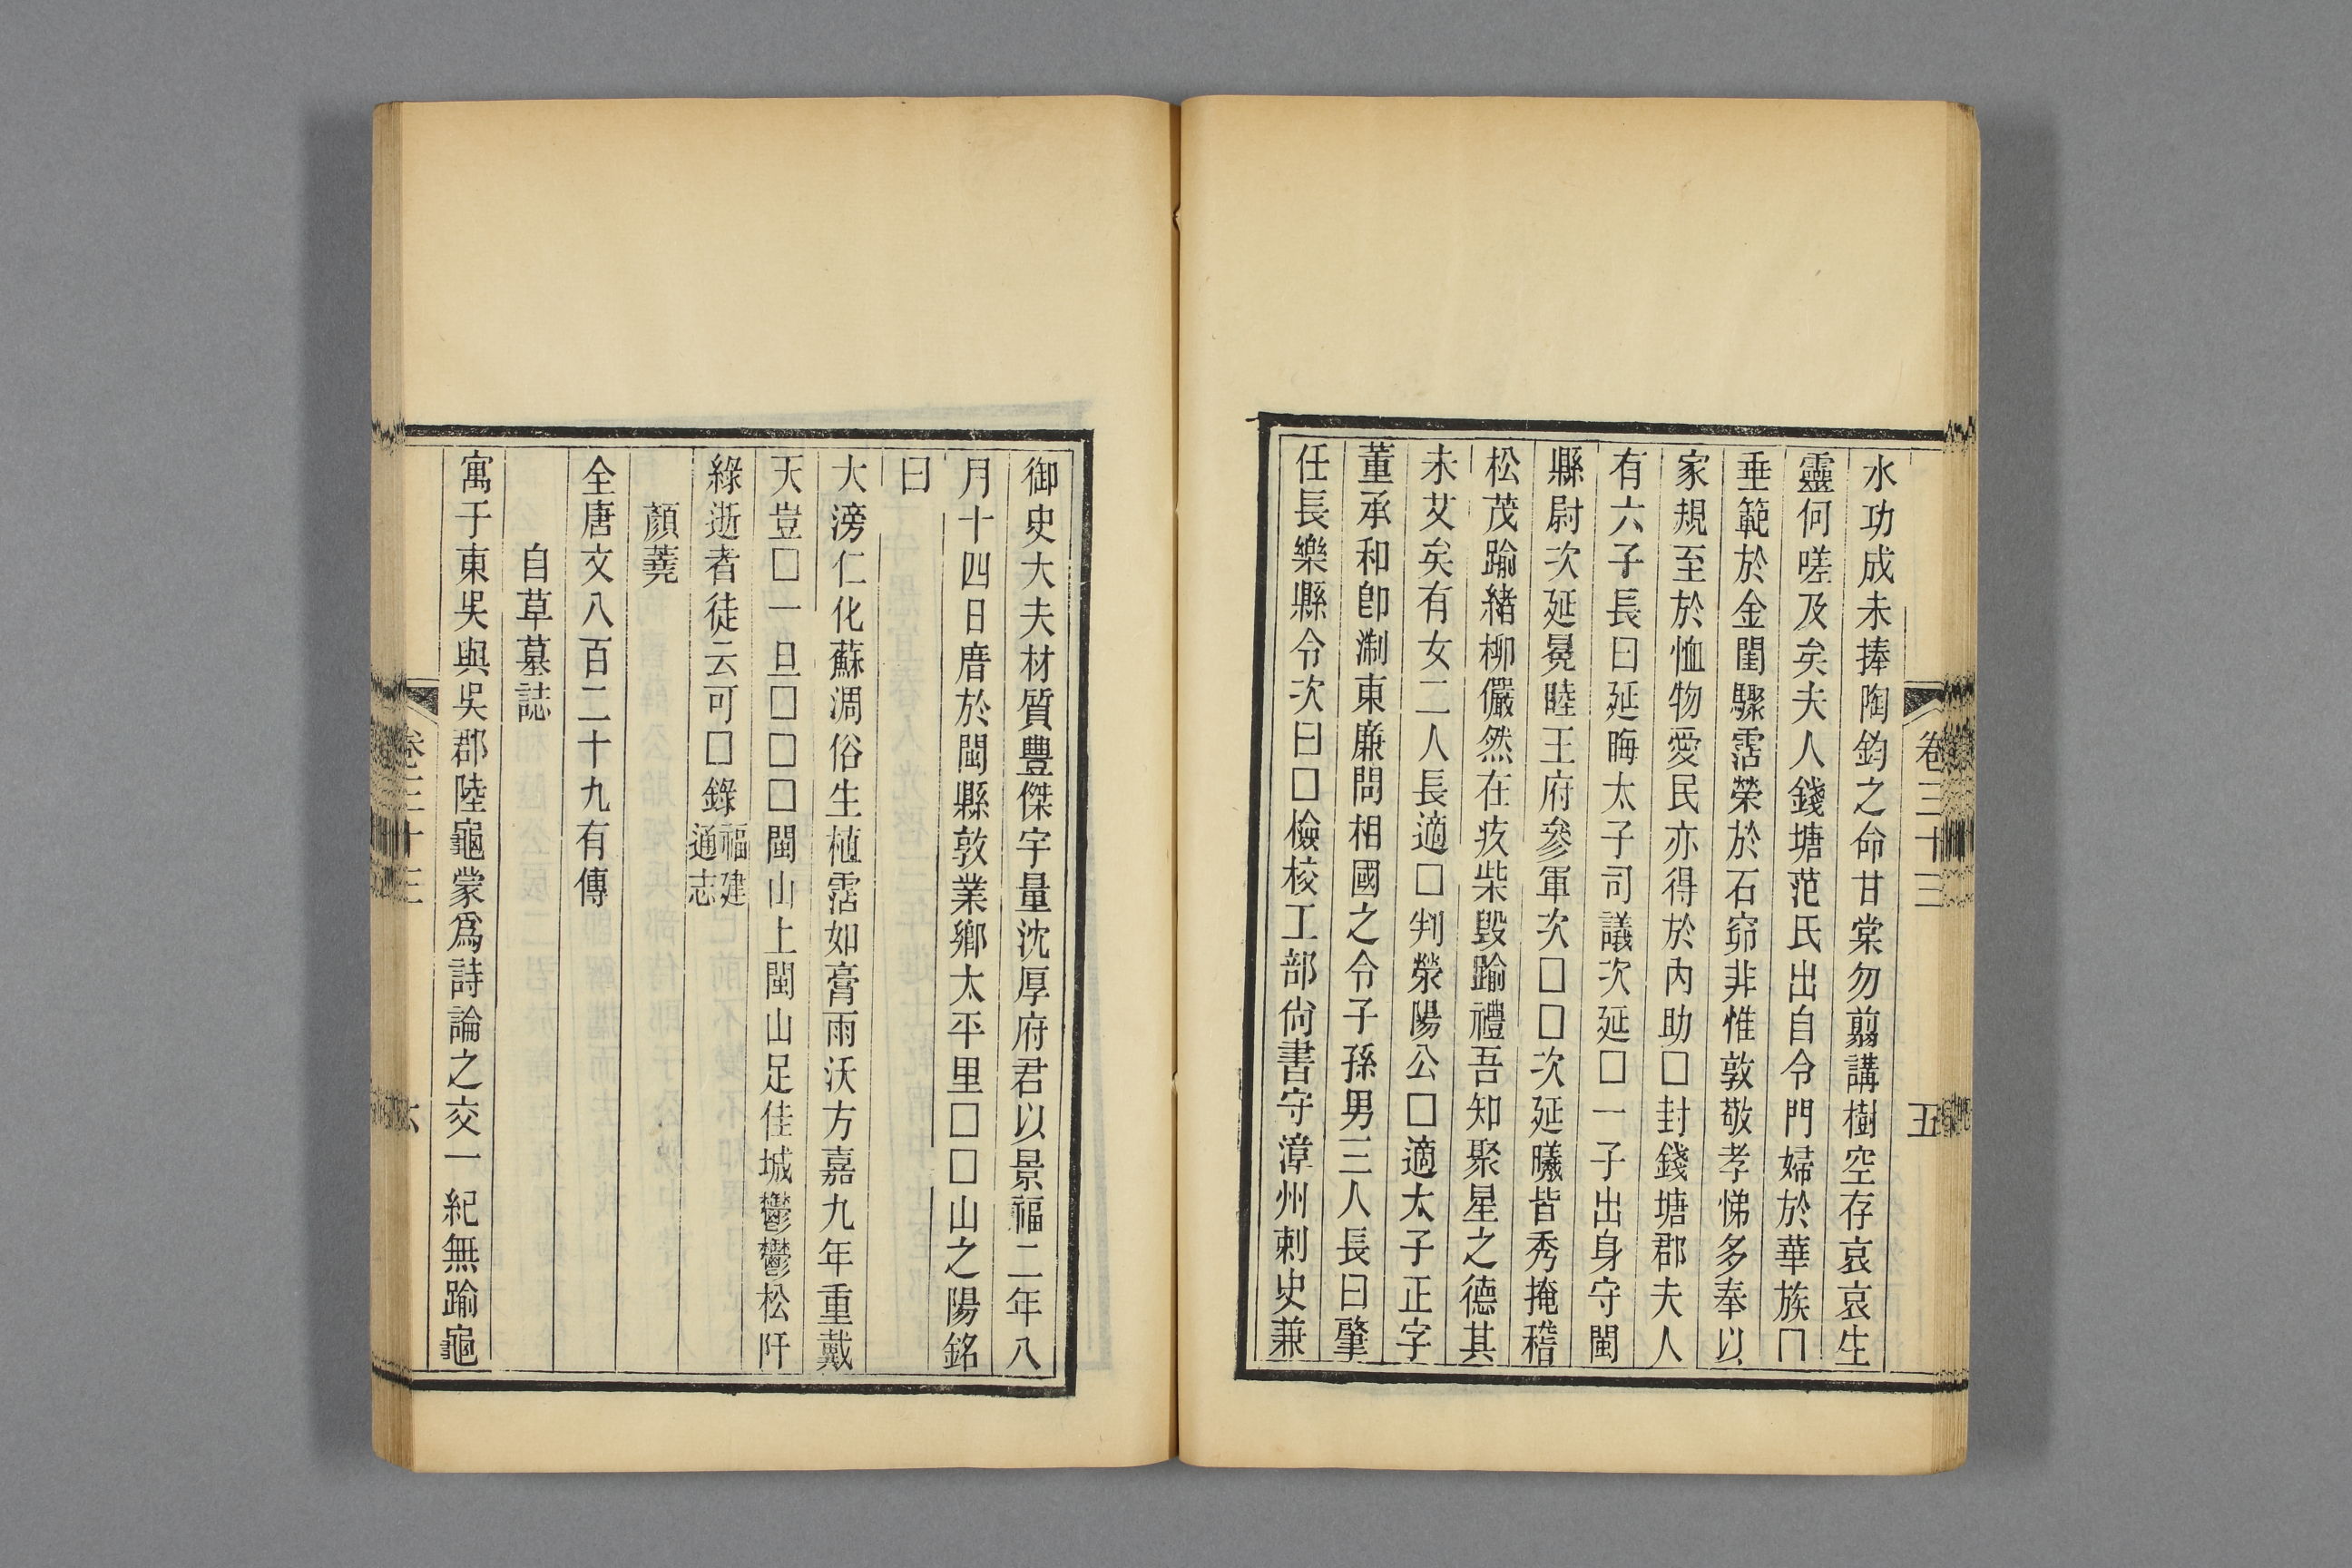 水功成未捧陶鈞之命甘棠勿翦講樹空存哀哀生
靈何嗟及矣夫人錢塘范氏出自令門婦於華族□
垂範於金閨驟霑榮於石窌非惟敦敬孝悌多奉以
家規至於恤物愛民亦得於內助□封錢塘郡夫人
有六子長曰延晦太子司議次延□一子出身守閩
縣尉次延冕睦王府參軍次□□次延曦皆秀掩稽
松茂踰緒柳儼然在疚柴毀踰禮吾知聚星之德其
未艾矣有女二人長適□判滎陽公□適太子正字
董承和卽淛東廉問相國之令子孫男三人長曰肇
任長樂縣令次曰□儉校工部尙書守漳州刺史兼
卷三十三
五
御史大夫材質豐傑宇量沈厚府君以景福二年八
月十四日厝於閩縣敦業鄉太平里□□山之陽銘
曰
大滂仁化蘇凋俗生植霑如膏雨沃方嘉九年重戴
天豈□一旦□□□閩山上閩山足佳城鬱鬱松阡
綠逝者徒云可□錄福建通志
顏蕘
全唐文八百二十九有傳
自草墓誌
寓于東吳與吳郡陸龜蒙爲詩論之交一紀無踰龜
卷三十三
六